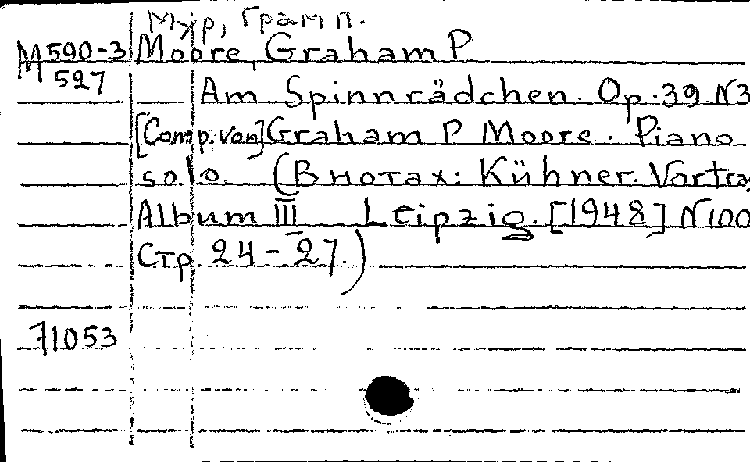 Мур, Грам П.
М 590-3 Moore, Graham P
527
Am Spinnrädchen. Op. 39 N3
[Comp. von] Graham P Moore. Piano
solo. (В нотах: Kühner. Vortra
Album III Leipzig. [1948] N 100
Стр. 24-27.)
71053